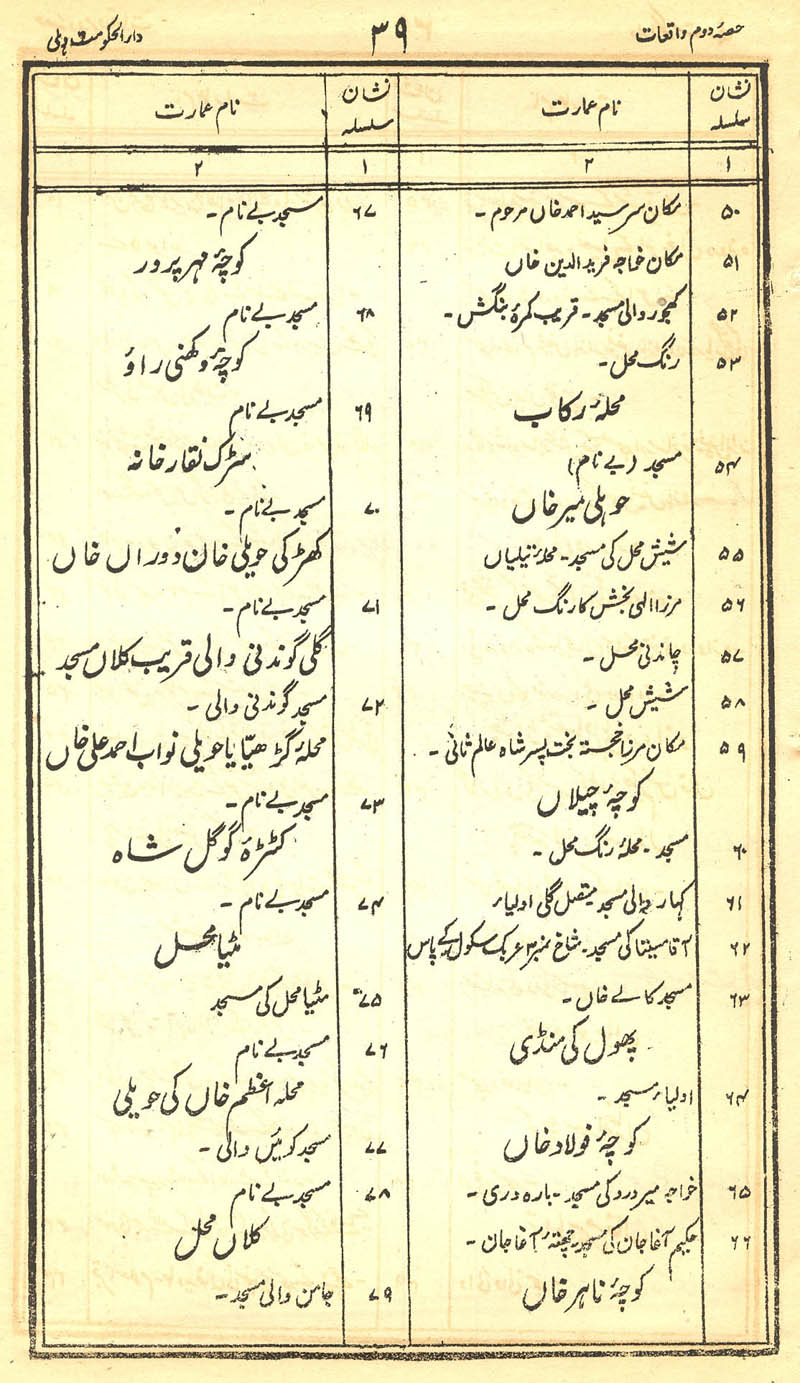 حصۂ دوم واقعات ۳۹ دارالحکومت دہلی
نشان سلسلہ نام عمارت
۱ ۲
۵۰ مکان سرسید احمد خاں مرحوم۔
۵۱ مکان خواجہ فرید الدین خاں
۵۲ کھجور والی مسجد۔ قریب کمرۂ بنگش۔
۵۳ رنگ محل۔
محلۂ رکاب
۵۴ مسجد (بے نام)
حویلی میر خاں
۵۵ شیش محل کی مسجد۔ محلہ تیلیاں
۵۶ مرزا الٰہی بخش کا رنگ محل۔
۵۷ چاندنی محل۔
۵۸ شیش محل۔
۵۹ مکان مرزا خجستہ بخت پسر شاہ عالم ثانی۔
کوچۂ چیلاں
۶۰ مسجد۔ محلۂ رنگ محل۔
۶۱ کہار والی مسجد متصل گلی اولیاء
۶۲ آقا کی مسجد۔ شاخ نمبر ۳ عربک سکول کے پاس
۶۳ مسجد کالے خاں۔
پھول کی منڈی
۶۴ اولیاء مسجد۔
کوچۂ فولاد خاں
۶۵ خواجہ میر درد کی مسجد۔ بارہ دری۔
۶۶ حکیم آغا جان کی مسجد۔ چھتہ آغا جان۔
کوچۂ ناہر خاں
نشان سلسلہ نام عمارت
۱ ۲
۶۷ مسجد بے نام۔
کوچۂ مہر پرور
۶۸ مسجد بے نام
کوچۂ دکھنی راؤ
۶۹ مسجد بے نام
سڑک نقار خانہ
۷۰ مسجد بے نام۔
کھڑکی حویلی خان دوراں خاں
۷۱ مسجد بے نام۔
گلی گوندنی والی قریب کلاں مسجد
۷۲ مسجد گوندنی والی۔
محلۂ گڑھیّا یا حویلی نواب احمد علی خاں
۷۳ مسجد بے نام۔
کٹرۂ گوگل شاہ
۷۴ مسجد بے نام۔
مٹیا محل
۷۵ مٹیا محل کی مسجد
۷۶ مسجد بے نام
محلہ اعظم خاں کی حویلی
۷۷ مسجد کوئیں والی۔
۷۸ مسجد بے نام
کلاں محل
۷۹ جامن والی مسجد۔